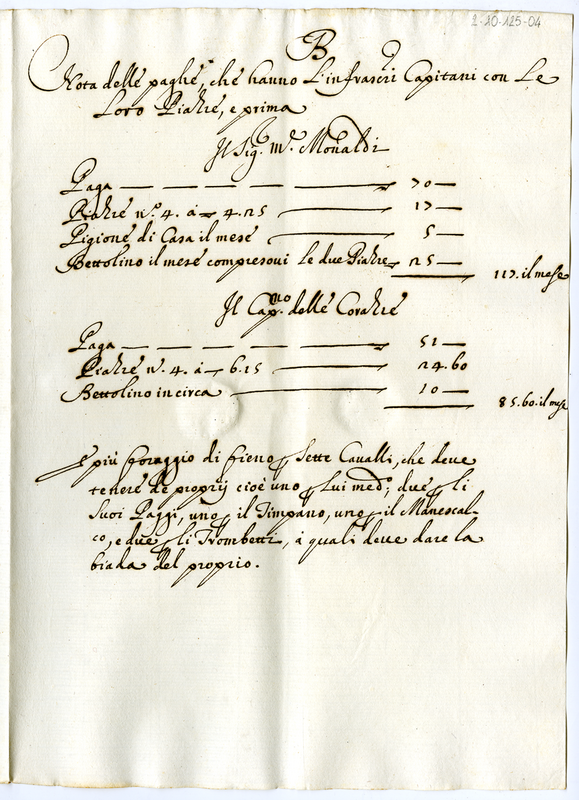 2-10-125-04
B
Nota delle paghe, che hanno L'infrascri Capitani con Le
Loro Piazze, e prima
Il Sig. M.ᵉ Monaldi
Paga — 70 —
Piazze n.º 4. à — 4.25 — 17 —
Pigione di Casa il mese — 5 —
Bettolino il mese compresovi le due Piazze — 25 —
117. il mese
Il Cap.ⁿᵒ delle Corazze
Paga — 51 —
Piazze n. 4. à — 6.15 — 24.60
Bettolino in circa — 10 —
85.60. il mese
E più foraggio di fieno p Sette Cavalli, che deve
tenere de proprij cioè uno p Lui med.º; due p li
Suoi Paggi, uno p il Timpano, uno p il Manescal-
co, e due p li Trombetti, à quali deve dare la
biada del proprio.